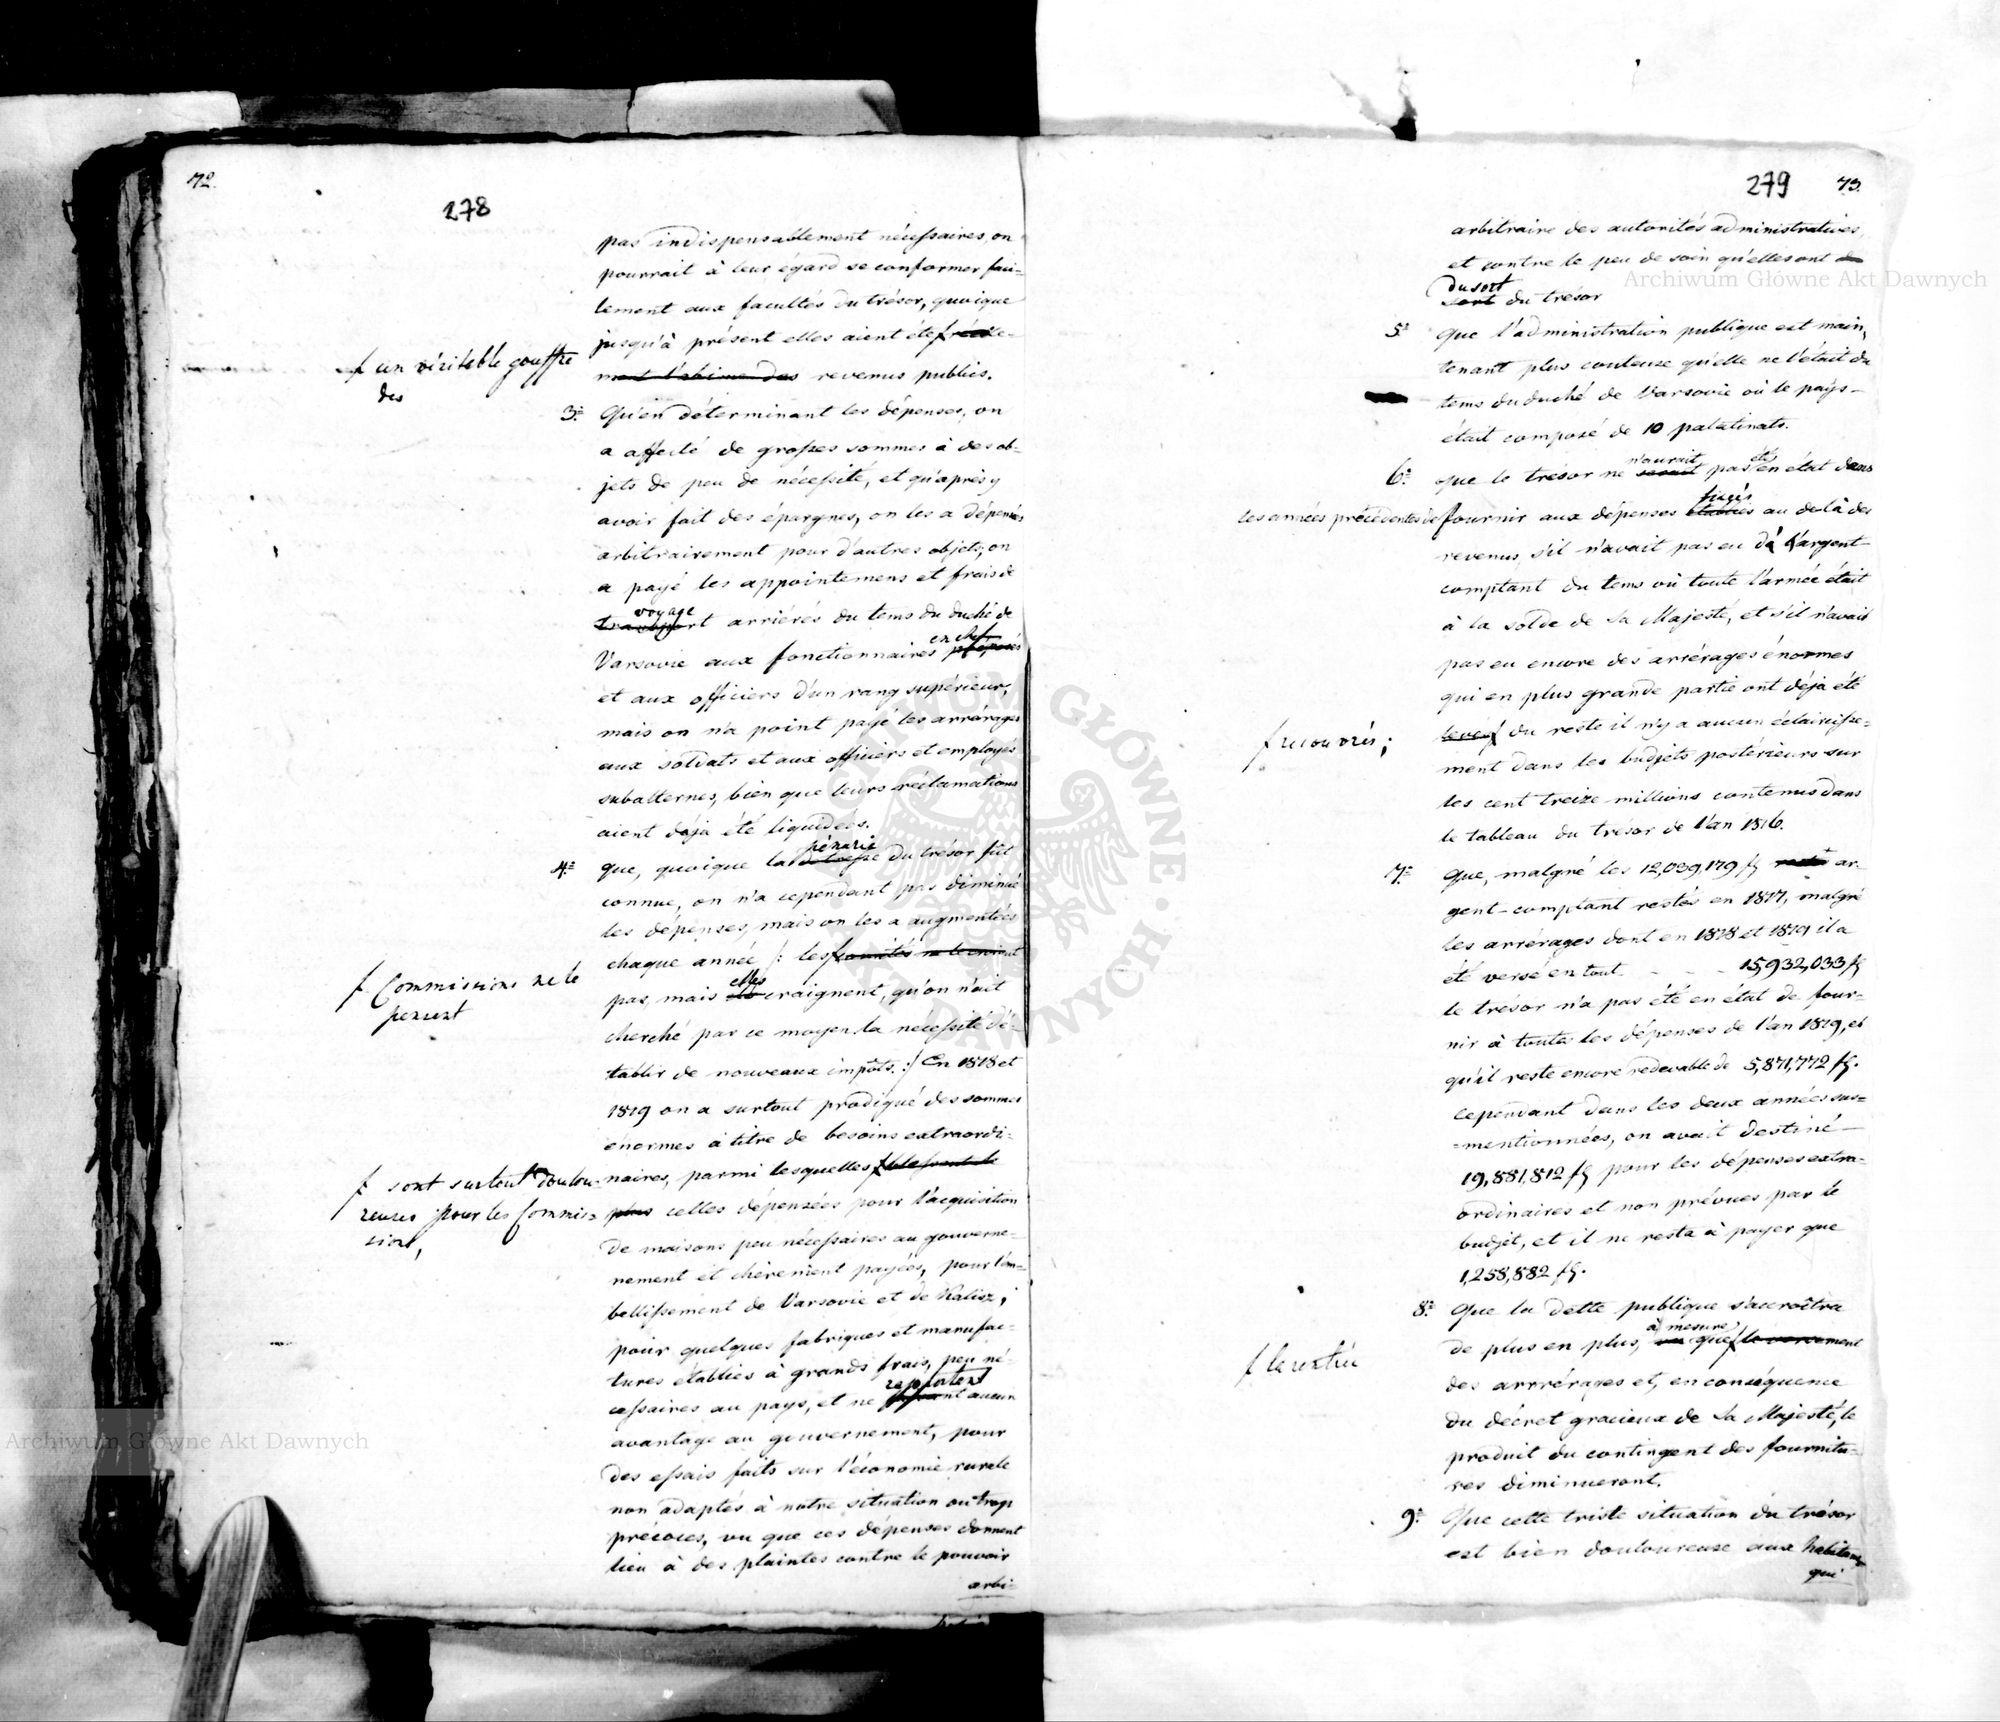 72.
278
pas indispensablement nécessaires, on
pourrait à leur égard se conformer faci-
lement aux facultés du trésor, quoique
jusqu'à présent elles aient été réelle-
ment l'abime des revenus publics.
f un véritable gouffre
des
3º Qu'en déterminant les dépenses, on
a affecté de grosses sommes à des ob-
jets de peu de nécessité, et qu'après y
avoir fait des épargnes, on les a dépensées
arbitrairement pour d'autres objets; on
a payé les appointemens et frais de
voyage
transport arriérés du tems du duché de
en chef
Varsovie aux fonctionnaires préposés
et aux officiers d'un rang supérieur;
mais on n'a point payé les arrérages
aux soldats et aux officiers et employés
subalternes, bien que leurs réclamations
aient déja été liquidées.
pénurie
4º que, quoique la détresse du trésor fût
connue, on n'a cependant pas diminué
les dépenses, mais on les a augmentées
chaque année /: les comités ne le croient
f Commissions ne le
pensent
elles
pas, mais craignent, qu'on n'ait
cherché par ce moyen la nécessité d'é-
tablir de nouveaux impôts. :/ En 1818 et
1819 on a surtout prodigué des sommes
énormes à titre de besoins extraordi-
naires, parmi lesquelles f blessent le
f sont surtout doulou-
reuses pour les Commis-
sions,
plus celles dépensées pour l'acquisition
de maisons peu nécessaires au gouverne-
nement et chèrement payées, pour l'em-
bellissement de Varsovie et de Kalisz;
pour quelques fabriques et manufac-
tures établies à grands frais, peu né-
rapportent
cessaires au pays, et ne aucun
avantage au gouvernement, pour
des essais faits sur l'économie rurale
non adaptés à notre situation ou trop
précoces, vu que ces dépenses donnent
lieu à des plaintes contre le pouvoir
arbi-
279 73.
arbitraire des autorités administratives,
et contre le peu de soin qu'elles ont de
du sort
sort du trésor
5º Que l'administration publique est main-
tenant plus couteuse qu'elle ne l'était du
tems du duché de Varsovie où le pays
était composé de 10 palatinats.
n'aurait été
6º que le trésor ne serait pas en état dans
fixées
les années précédentes de fournir aux dépenses établies au delà des
revenus, s'il n'avait pas eu de l'argent
comptant du tems où toute l'armée était
à la solde de Sa Majesté, et s'il n'avait
pas eu encore des arrérages énormes
qui en plus grande partie ont déja été
f recouvrés;
levés f du reste il n'y a aucun éclaircisse-
ment dans les budjets postérieurs sur
les cent treize millions contenus dans
le tableau du trésor de l'an 1816.
7º Que, malgré les 12,039,179 fg ar-
gent-comptant restés en 1817, malgré
les arrérages dont en 1818 et 1819 il a
été versé en tout - - - 15,932,033 fg
le trésor n'a pas été en état de four-
nir à toutes les dépenses de l'an 1819, et
qu'il reste encore redevable de 5,871,772 fg.
cependant dans les deux années sus-
=mentionnées, on avait destiné
19,881,812 fg pour les dépenses extra-
ordinaires et non prévues par le
budjet, et il ne resta à payer que
1,258,882 fg.
8º Que la dette publique s'accroîtra
à mesure
de plus en plus, vu que f le versement
des arrrérages et, en conséquence
du décret gracieux de Sa Majesté, le
produit du contingent des fournitu-
res diminueront.
9º Que cette triste situation du trésor
est bien douloureuse aux habitans
qui
Archiwum Główne Akt Dawnych
Archiwum Główne Akt Dawnych
ARCHIWUM GŁÓWNE AKT DAWNYCH